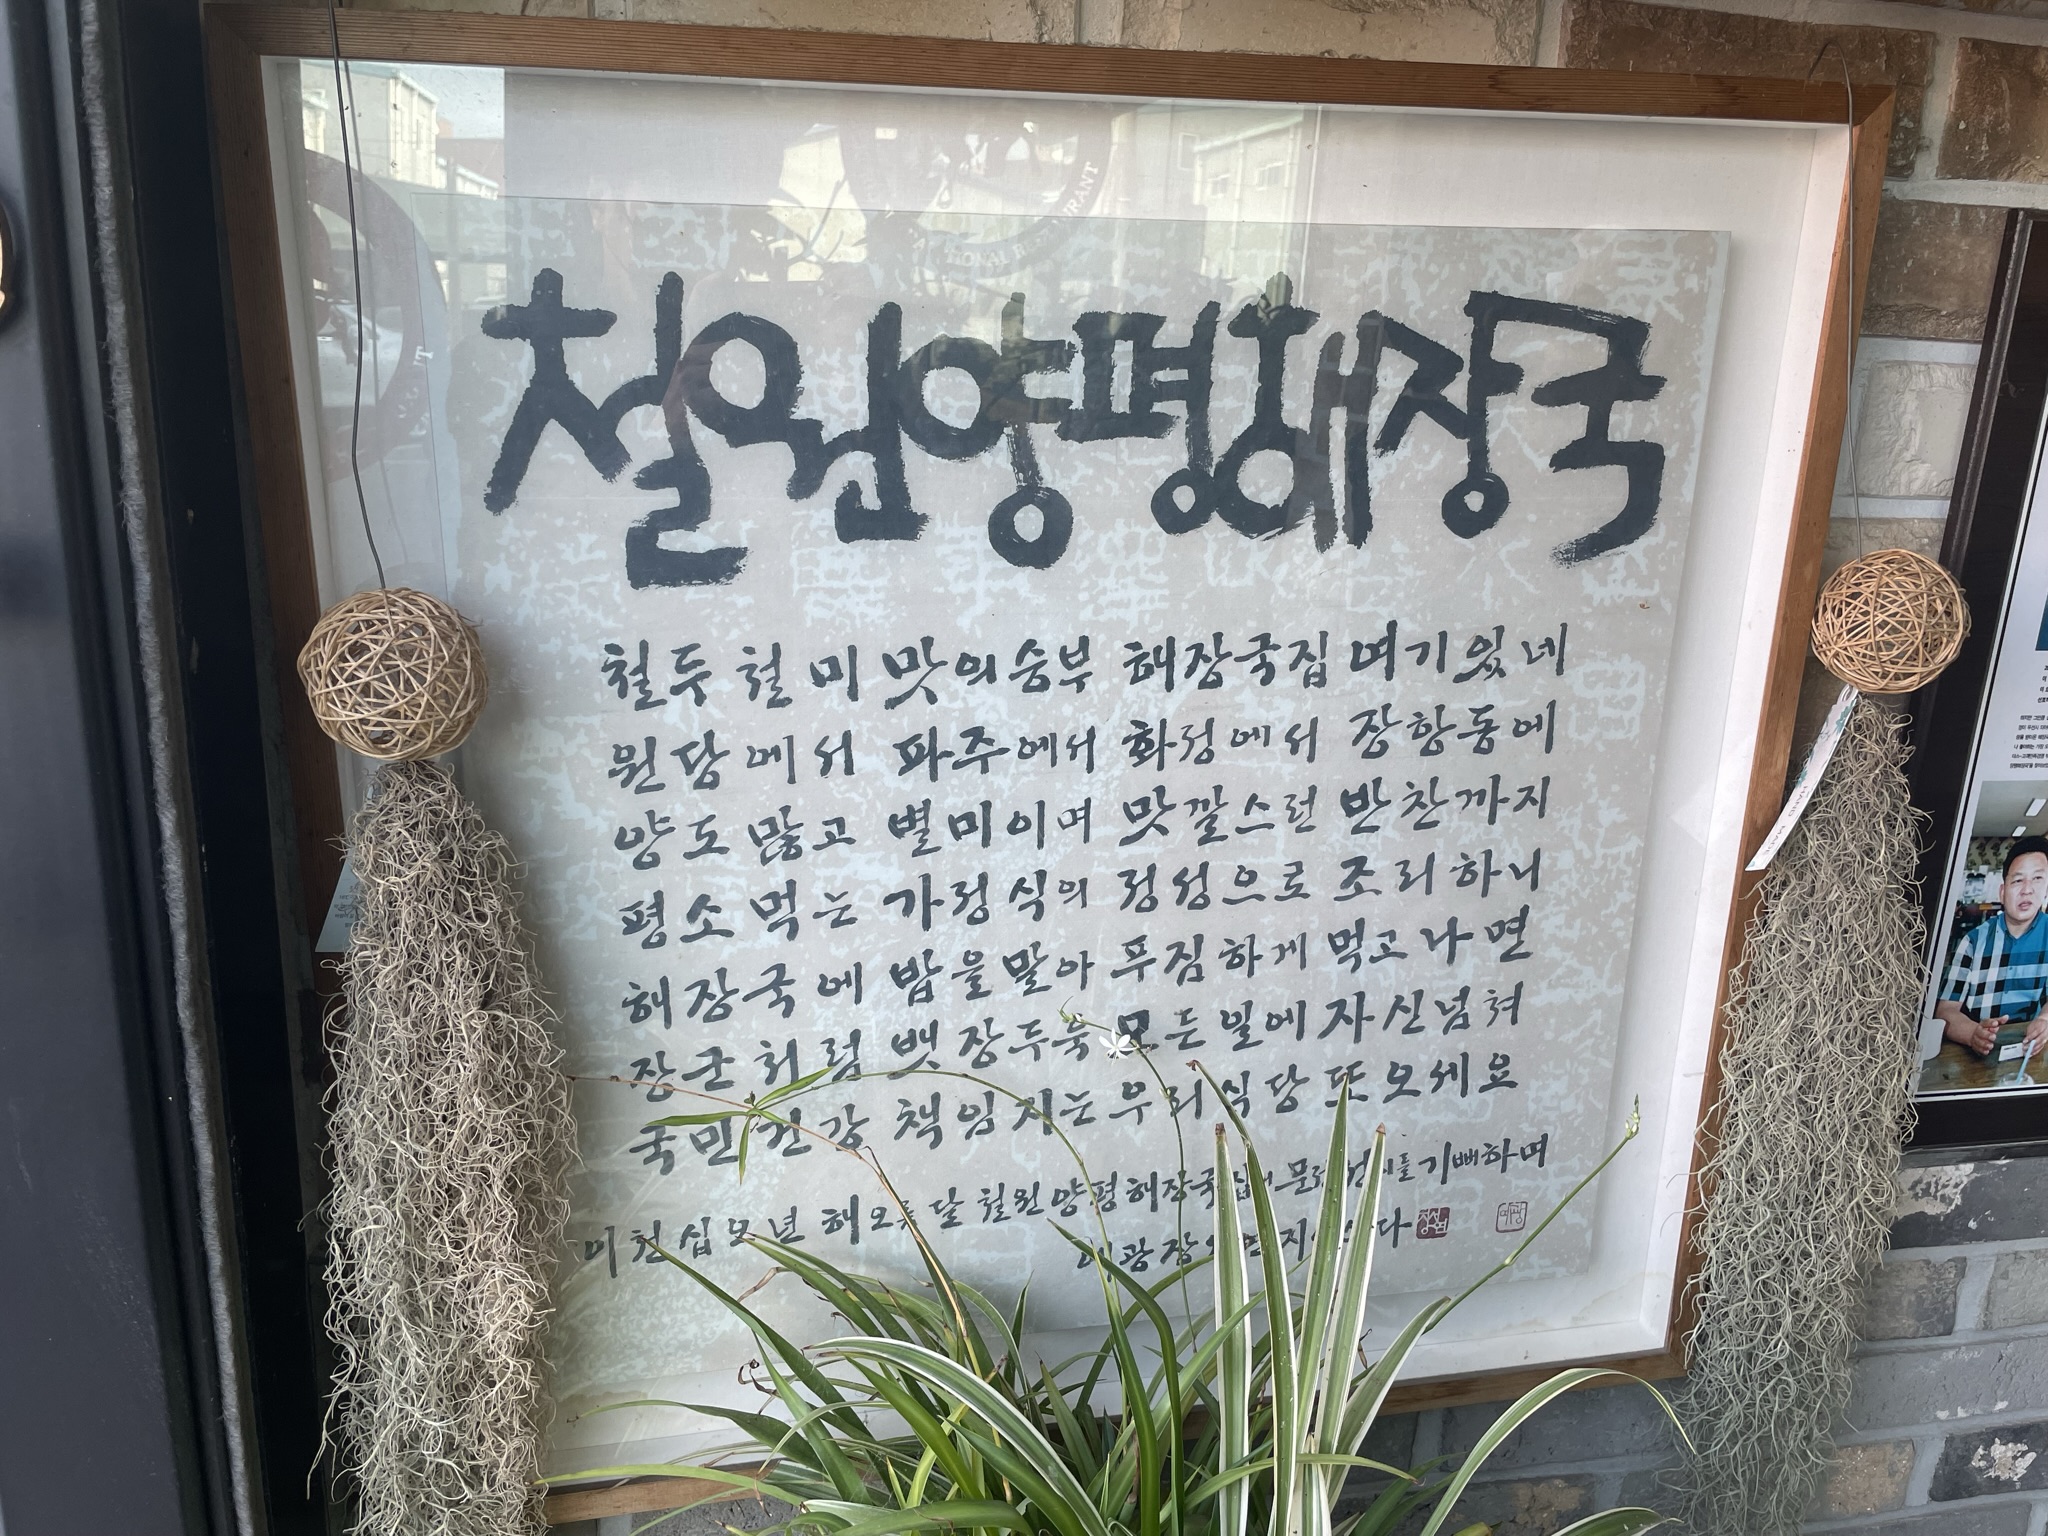 철원양평해장국
철두철미 맛의 승부 해장국집 여기있네
원당에서 파주에서 화정에서 장항동에
양도 많고 별미이며 맛깔스런 반찬까지
평소 먹는 가정식의 정성으로 조리하니
해장국에 밥을 말아 푸짐하게 먹고나면
장군처럼 뱃장두둑 모든일에 자신넘쳐
국민건강 책임지는 우리식당 또오세요
이천십오년 해오름달 철원양평해장국집 기뻐하며
HAND MADE